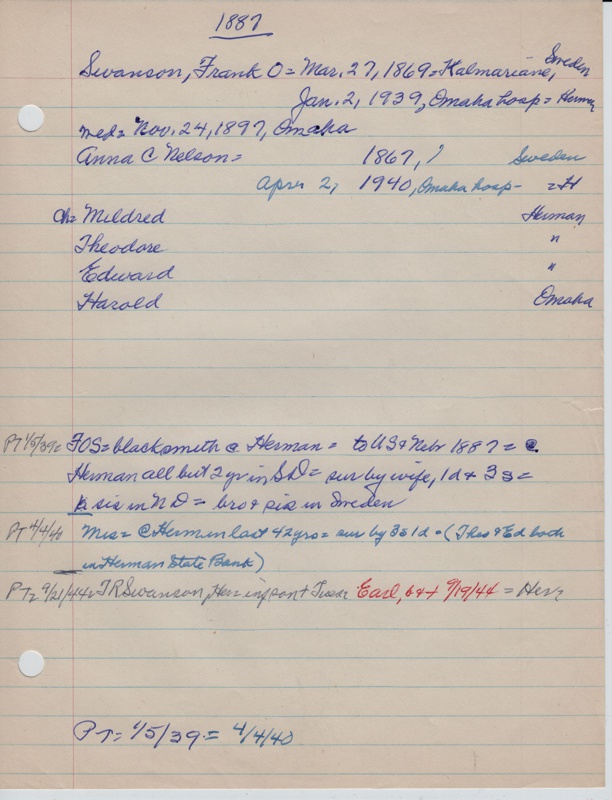 1887
Swanson, Frank O = Mar. 27, 1869 = Kalmariane, Sweden
Jan. 2, 1939, Omaha hosp = Herman
med = Nov. 24, 1897, Omaha
Anna C Nelson = 1867, ? Sweden
April 2, 1940, Omaha hosp - = H
Ch = Mildred Herman
Theodore "
Edward "
Harold Omaha
PT 1/5/39 = FOS = blacksmith @ Herman = to US & Nebr 1887 = @
Herman all but 2 yr in SD = sur by wife, 1d + 3s =
sis in ND = bro + sis in Sweden
PT 4/4/40 Mrs = @ Herman last 42 yrs = sur by 3s 1d = (Theo & Ed both
in Herman State Bank)
PT = 9/21/44 = TR Swanson, Her = inf son + Earl, b & + 9/19/44 = Her =
PT = 1/5/39 = 4/4/40